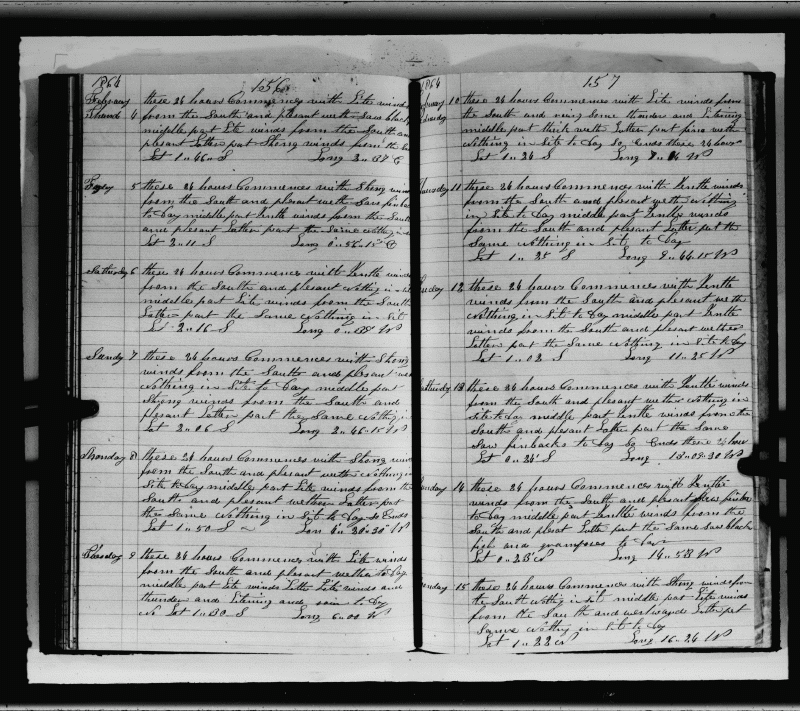 1864 156
Febuary these 24 hours Commences with Lite winds
4 from the South and plesant with Saw black
middle part Lite winds from the South an
plesant Latter part Strong winds from the
Lat 1=46=S Long 3=37 E
5 these 24 hours Commences with Strong win
from the South and plesant with Saw finback
to Day middle part Gentle winds from the South
and plesant Latter part the Same nothing in
Lat 2=11=S Long 0=56=15" E
Saturday 6 these 24 hours Commences with Gentle winds
from the South and plesant nothing in sit
middle part Lite winds from the South
Latter part the Same Nothing in Sit
Lat=2=16=S Long 0=38 W
Sunday 7 these 24 hours Commences with Strong
winds from the South and plesant
Nothing in Site to Day middle part
Strong winds from the South and
plesant Latter part the Same nothing in
Lat 2=06=S Long 2=46=15 W
Monday 8 these 24 hours Commences with Strong win
from the South and plesant wether Nothing in
Site to Day middle part Lite winds from the
South and plesant wether Latter part
the Same Nothing in Site to Day So Ends
Lat 1=50 S Lon 4=20=30" W
Tuesday 9 these 24 hours Commences with Lite winds
from the South and plesant wether to Day
middle part Lite winds Latter Lite winds and
thunder and Litening and rain to Day
No Lat 1=30 S Long 6=00 W
1864 157
10 these 24 hours Commences with Lite winds from
the South and rainy Some thunder and Litening
middle part thick weth Latter part fine weth
Nothing in Site to Day So Ends these 24 hours
Lat 1=24 S Long W
11 these 24 hours Commences with Gentle winds
from the South and plesant weth Nothing
in Site to Day middle part Gentle winds
from the South and plesant Latter part the
Same Nothing in Site to Day
Lat 1=25 S Long 9=44=15 W
12 these 24 hours Commences with Gentle
winds from the South and plesant wethe
Nothing in Site to Day middle part Gentle
winds from the South and plesant wether
Latter part the Same Nothing in Site to Day
Lat 1=02 S Long 11=25 W
13 these 24 hours Commences with Gentle winds
from the South and plesant wether Nothing in
Site to Day middle part Gentle winds from the
South and plesant Latter part the Same
Saw finbacks to Day So Ends these 24 hour
Lat 0=24 S Long 13=08=30 W
14 these 24 hours Commences with Gentle
winds from the South and plesant Saw finbac
to Day middle part Gentle winds from the
South and plesat Latter part the Same saw black
fish and grampuses to Day
Lat 0=23 N Long 14=58 W
15 these 24 hours Commences with Strong winds from
the South Nothing in Site middle part Lite winds
from the South and westward Latter part
Same Nothing in Site to Day
Lat 1=22 N Long 16=24 W